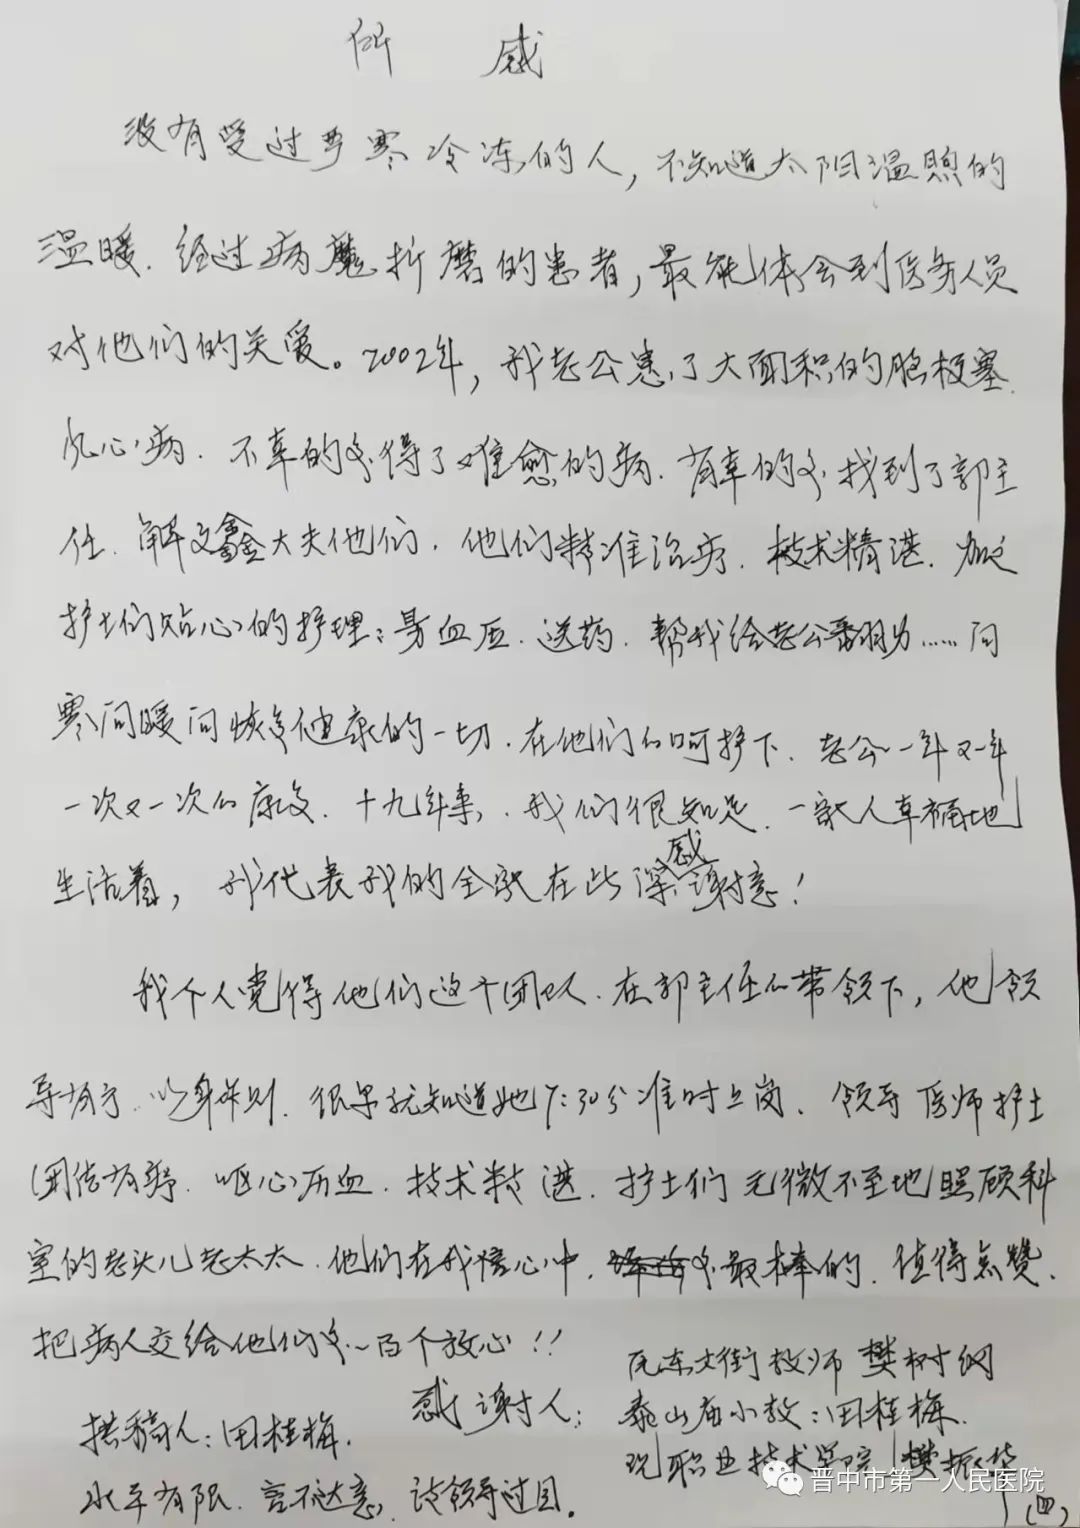 所 感
没有受过严寒冷冻的人，不知道太阳温煦的
温暖.经过病魔折磨的患者，最能体会到医务人员
对他们的关爱。2002年，我老公患了大面积的脑梗塞.
心病.不幸的是得了难愈的病.有幸的是找到了郭主
任.解文鑫大夫他们.他们精准治疗.技术精湛.加之
护士们贴心的护理:量血压.送药.帮我给老公翻身……问
寒问暖问恢复健康的一切.在他们的呵护下.老公一年又一年
一次又一次的康复.十九年来,我们很知足.一家人幸福地
生活着，我代表我的全家在此深感谢意!
我个人觉得他们这个团队.在郭主任的带领下，他领
导有方.以身作则.很早就知道她7:30分准时上岗.领导医师护士
团结有爱.呕心历血.技术精湛.护士们无微不至地照顾科
室的老头儿老太太.他们在我心中,是最棒的.值得点赞.
把病人交给他们是一百个放心!!
感谢人:
东大街教师 樊树纲
泰山庙小教:田桂梅.
现职业技术学院 樊振华
拱稿人:田桂梅.
水平有限.言不达意,请领导过目。
(四)
晋中市第一人民医院